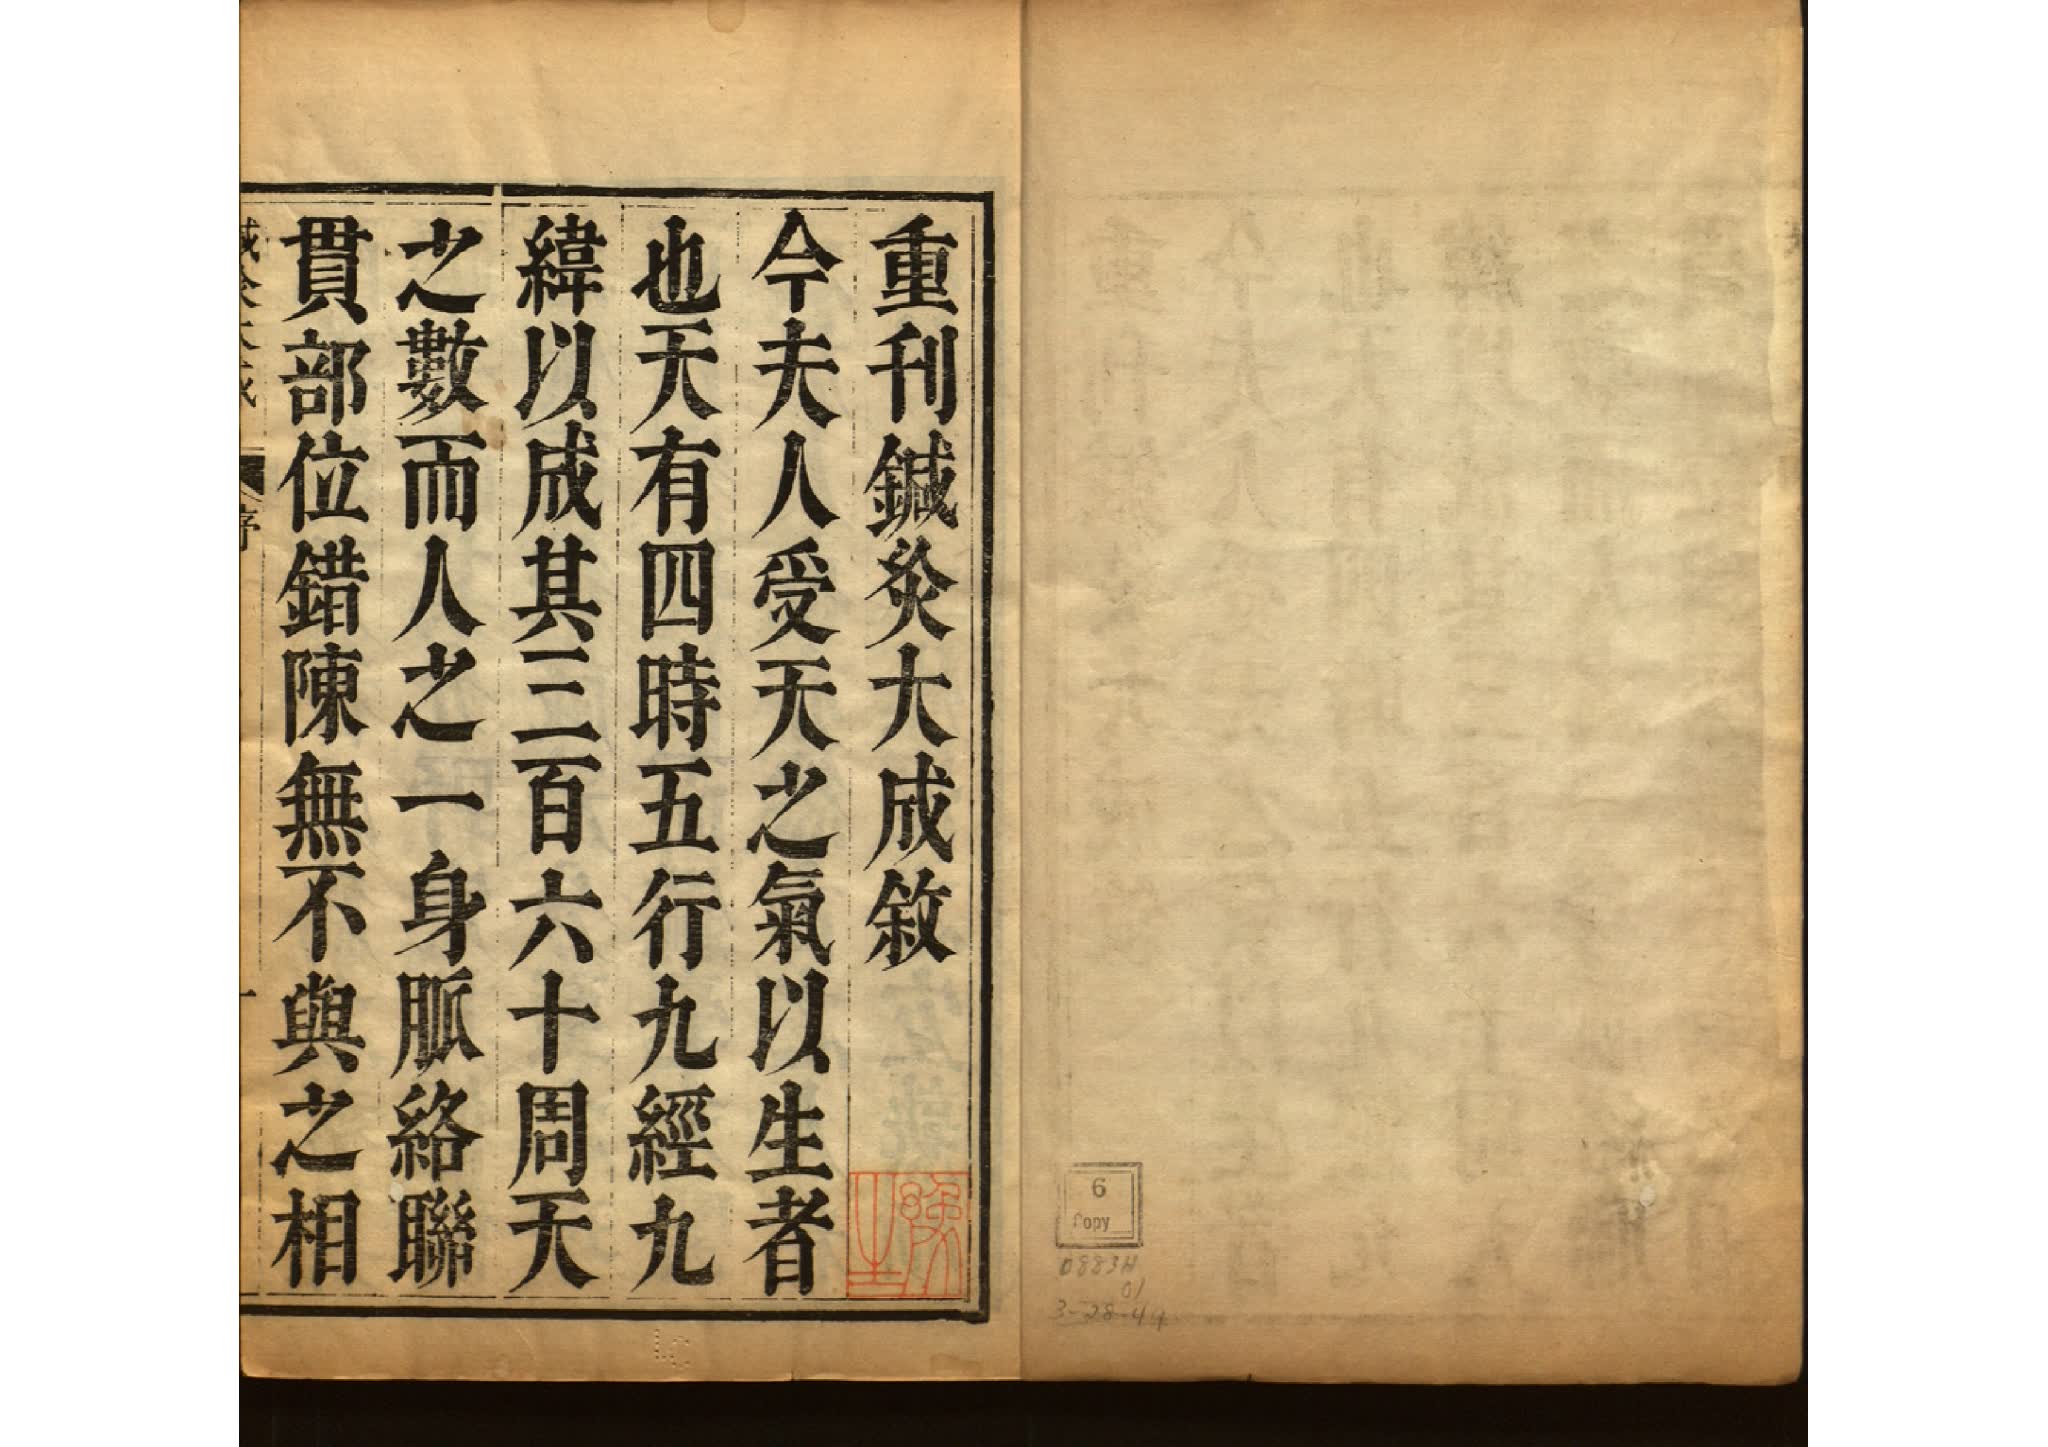 重刊鍼灸大成敘
今夫人受天之氣以生者
也天有四時五行九經九
緯以成其三百六十周天
之數而人之一身脈絡聯
貫部位錯陳無不與之相
序
一
6
Copy
0883H
01
3-28-44